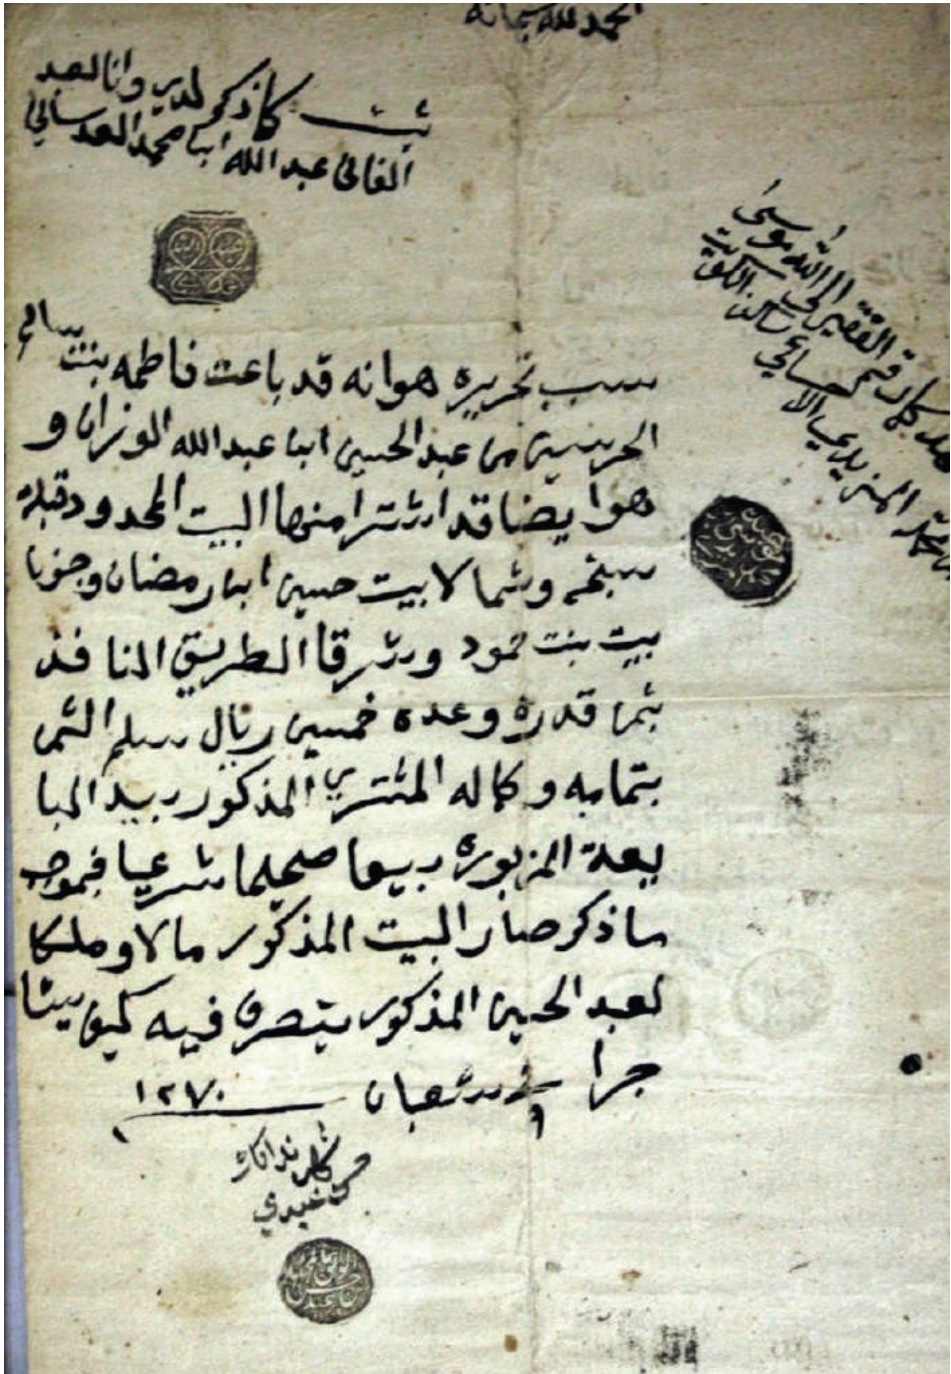 الحمد لله سبحانه
ثبت كما ذكر لدي وانا العبد
الفاني عبد الله ابن محمد العدساني
الفقير الى الله موسى
المزيدي الاحسائي ساكن الكويت
سبب تحريره هو انه قد باعت فاطمه بنت سالم
من عبد الحسين ابن عبد الله الوزان و
هو ايضا قد اشترا منها البيت المحدود قبلة
وشمالا بيت حسين ابن رمضان وجنوبا
بيت بنت حمود وشرقا الطريق النافذ
بثمن قدره وعده خمسين ريال سلم الثمن
بتمامه وكماله المشتري المذكور بيد البا
يعة المزبوره بيعا صحيحا شرعيا فبموجب
ما ذكر صار البيت المذكور مالا وملكا
لعبد الحسين المذكور يتصرف فيه كيف يشا
جرا في شعبان ١٢٧٠